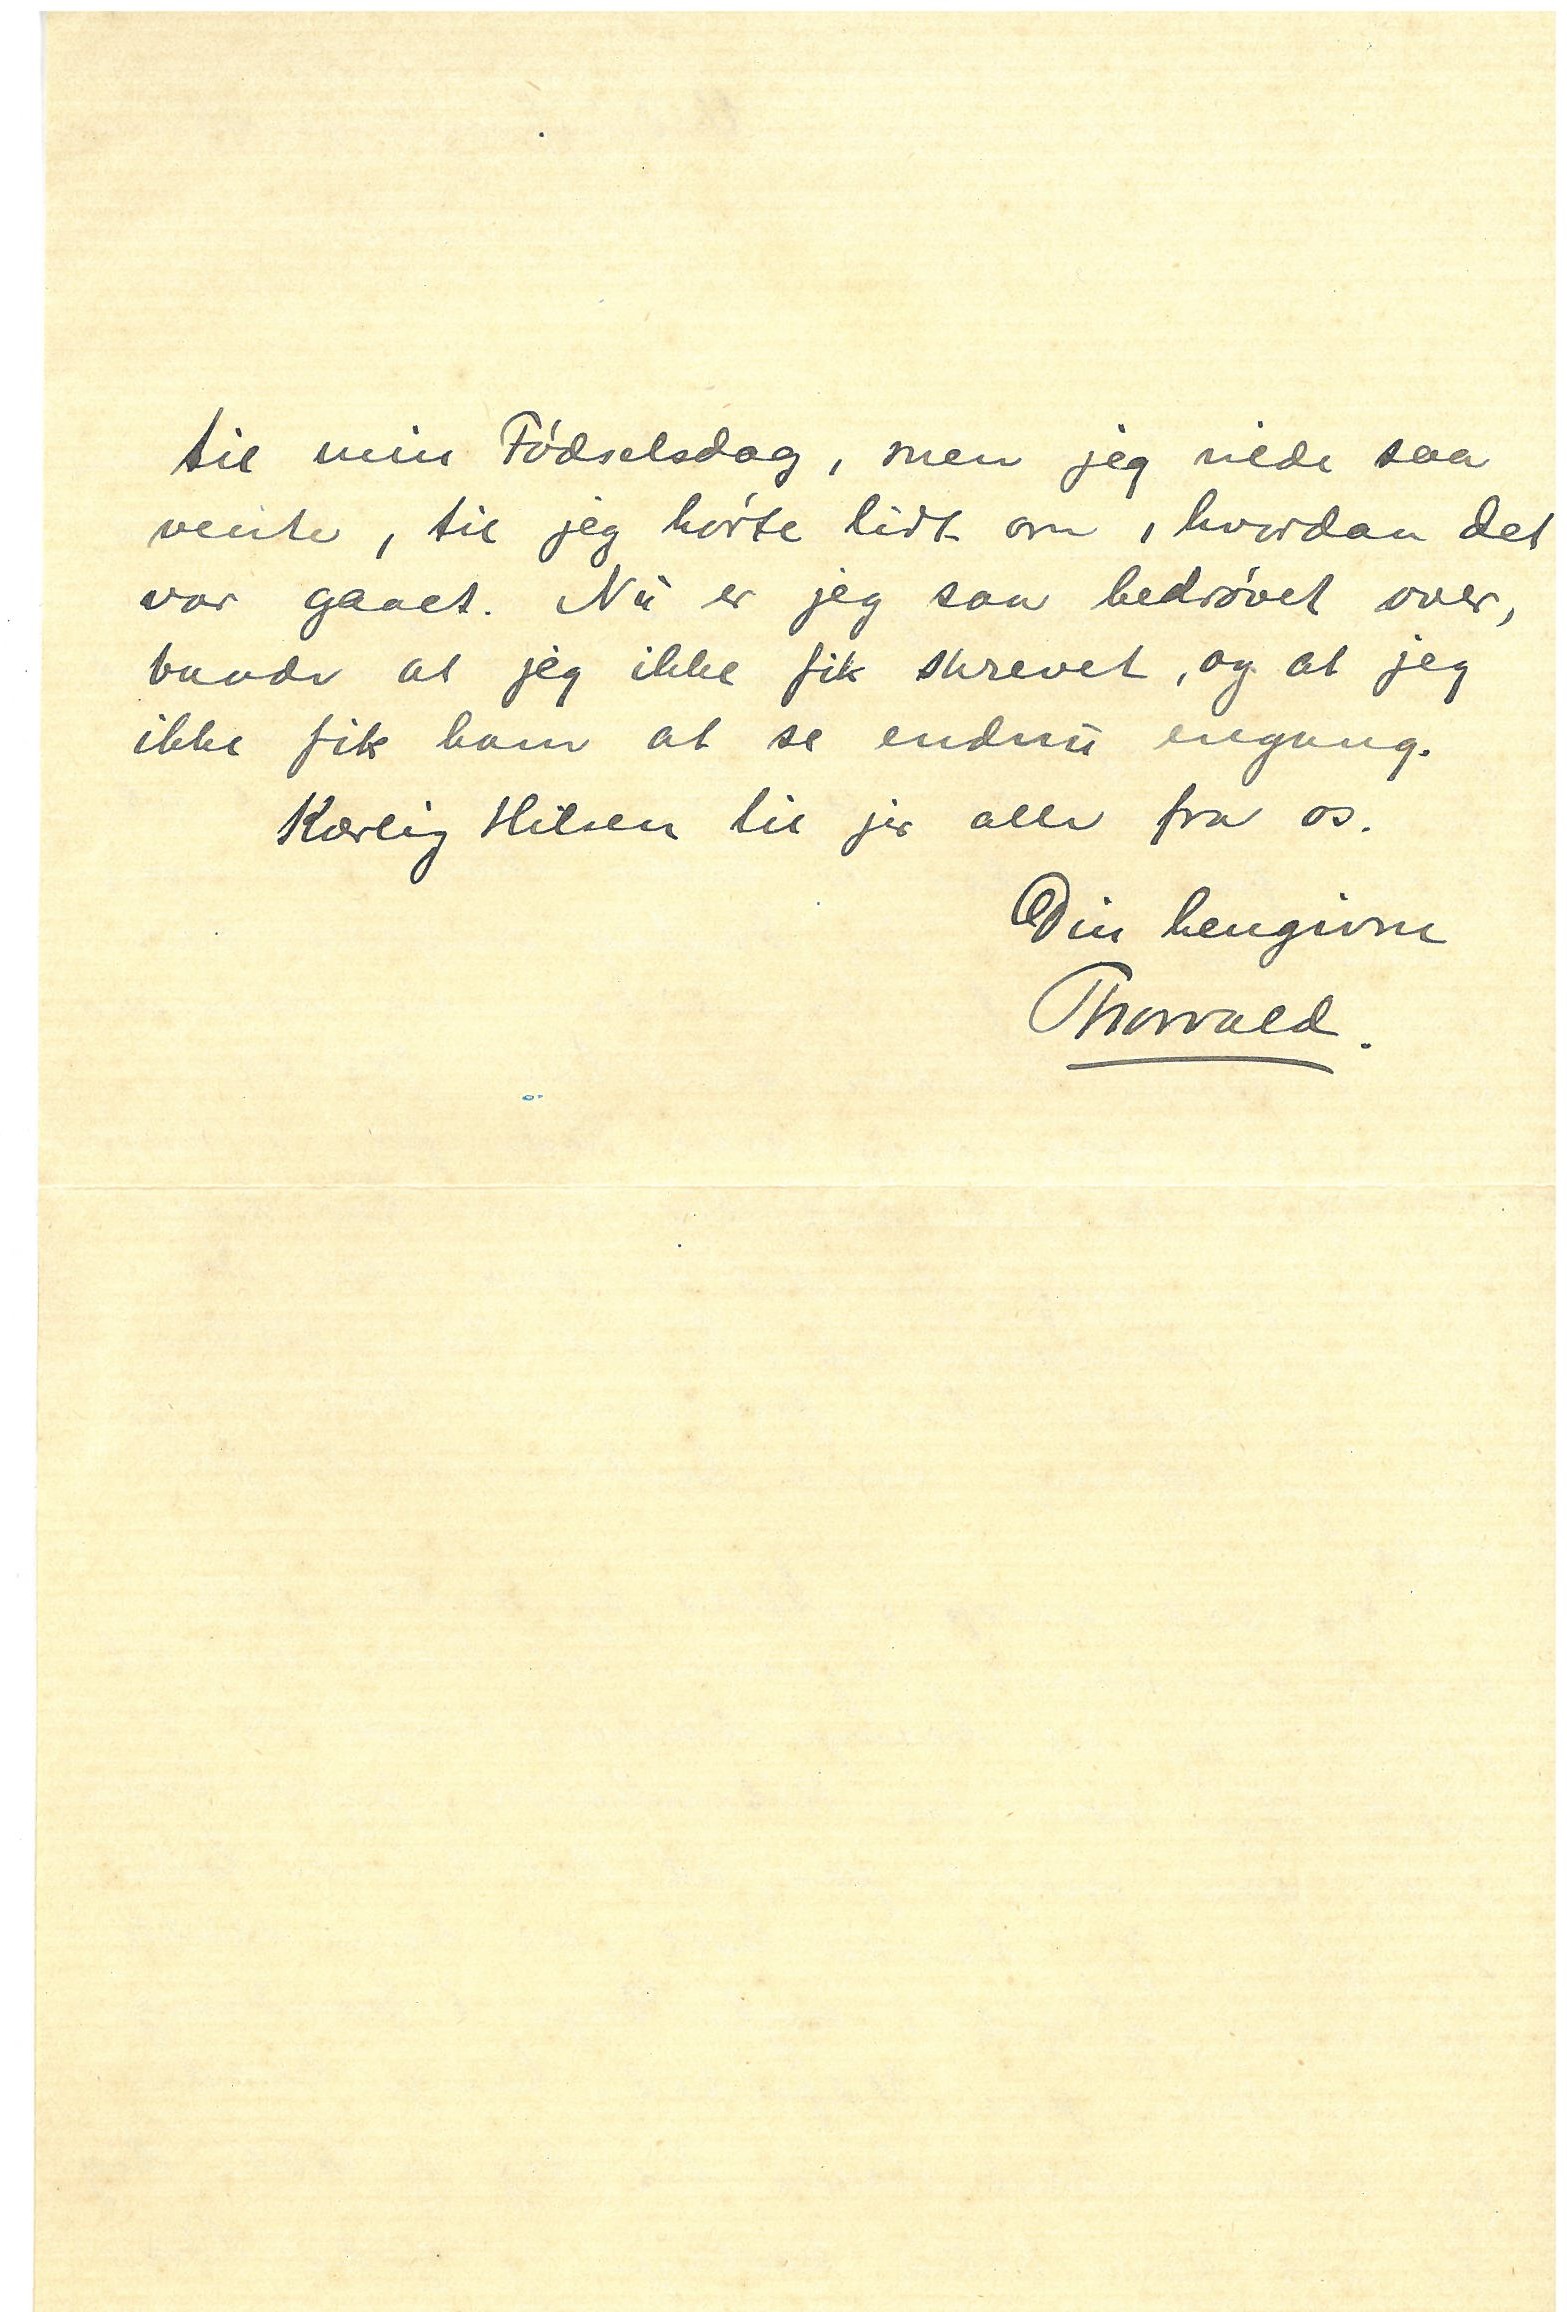 til min Fødselsdag, men jeg vilde saa
vente, til jeg hørte lidt om, hvordan det
var gaaet. Nu er jeg saa bedrøvet over,
baade at jeg ikke fik skrevet, og at jeg
ikke fik ham at se endnu engang.
Kærlig Hilsen til jer alle fra os.
Din hengivne
Thorvald.